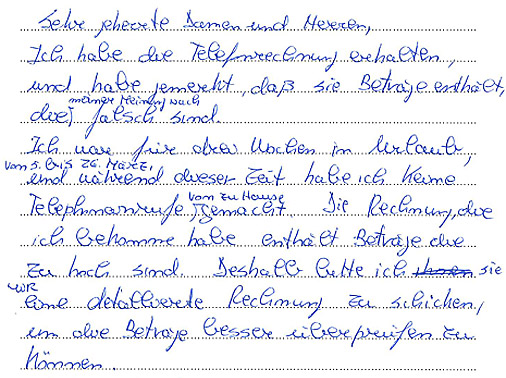 Sehr geherte Damen und Herren,
Ich habe die Telefonrechnung erhalten,
und habe gemerkt, daß sie Beträge enthält,
meiner Meinung nach
die falsch sind.
Ich war für drei Wochen in Urlaub,
vom 5. bis 26. März,
und während dieser Zeit habe ich keine
vom zu Hause
Telephonanrufe gemacht. Die Rechnung, die
ich bekomme habe enthält Beträge die
zu hoch sind. Deshalb bitte ich ihnen sie
mir
eine detallierete Rechnung zu schicken,
um die Beträge besser überprüfen zu
können.